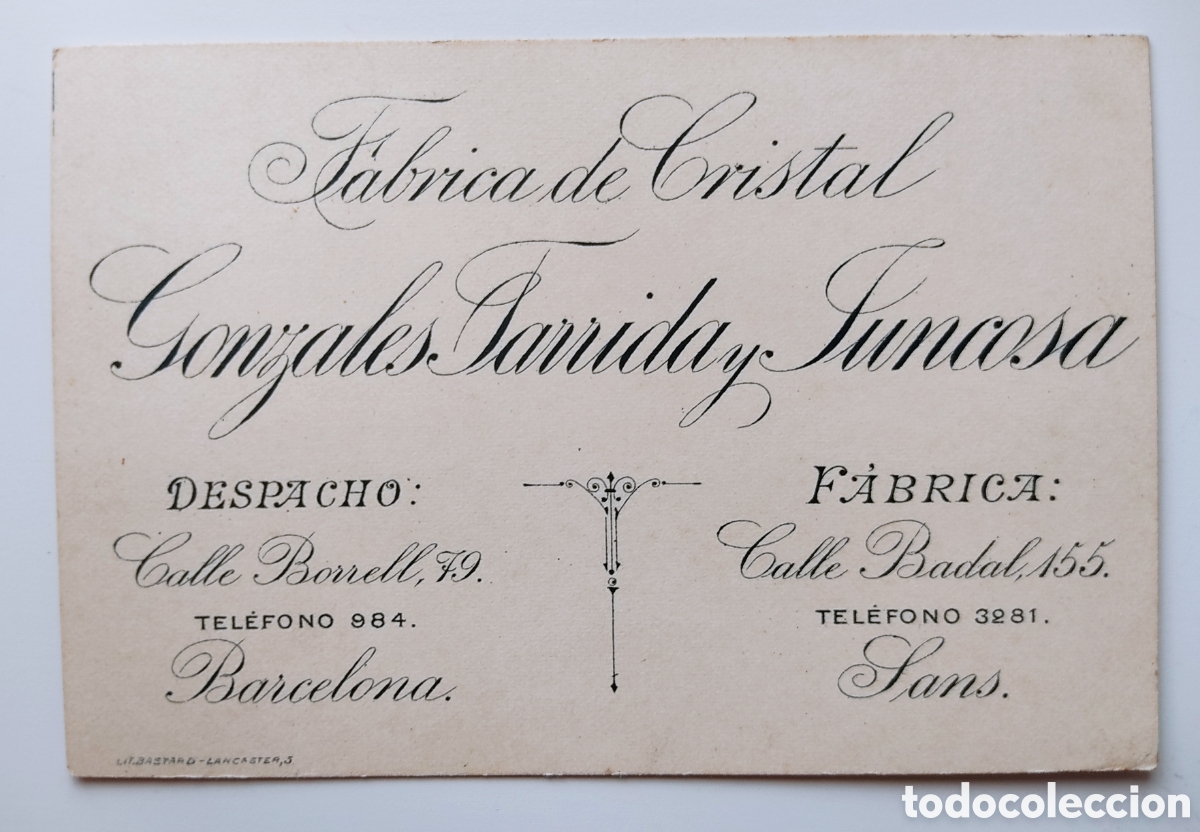 Fábrica de Cristal
Gonzales Tarrida y Juncosa
DESPACHO:
Calle Borrell, 79.
TELÉFONO 984.
Barcelona.
FÁBRICA:
Calle Badal, 155.
TELÉFONO 3281.
Sans.
LIT. BASTARD - LANCASTER, 5
todocoleccion